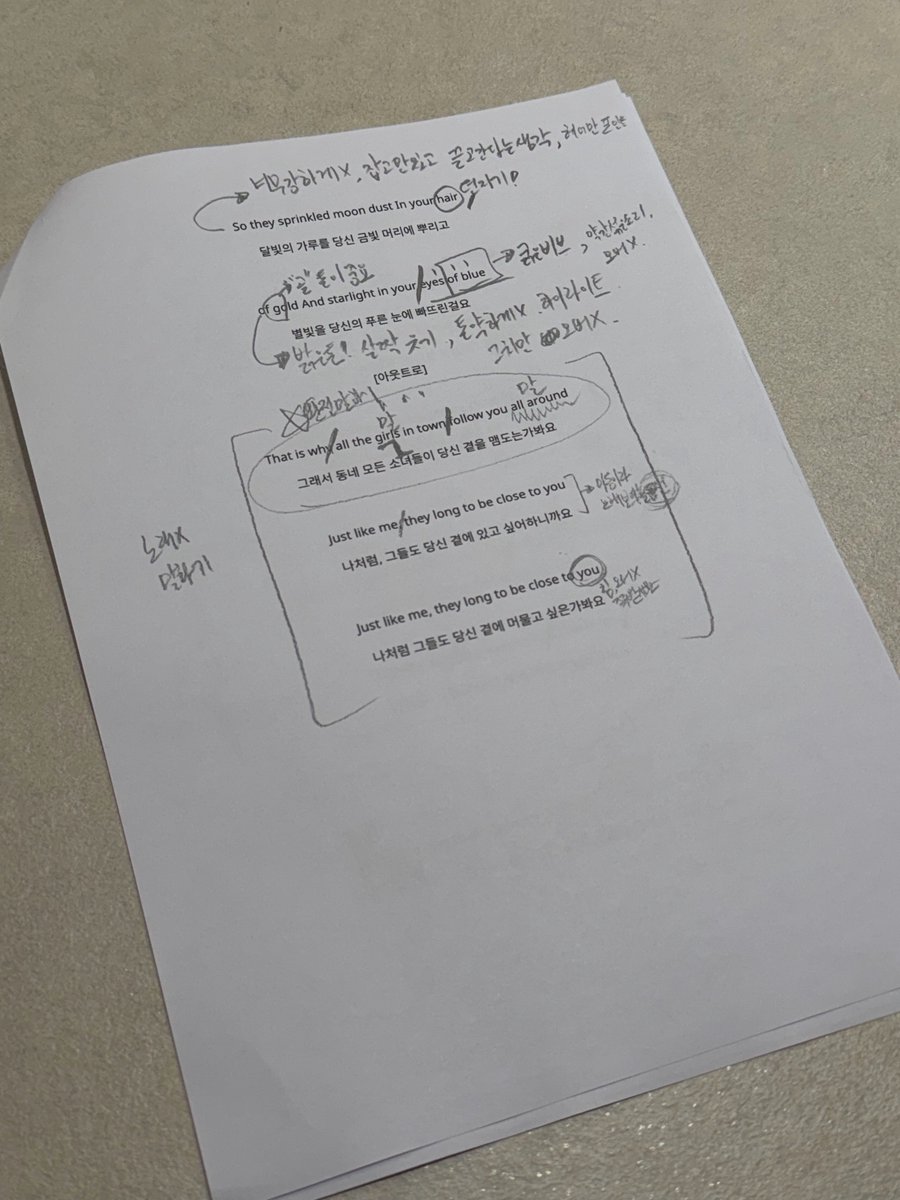 너무강하게X, 잡고만있고 끌고간다는생각,
So they sprinkled moon dust In your hair
달빛의 가루를 당신 금빛 머리에 뿌리고
"골" 톤이 중요
of gold And starlight in your eyes of blue
별빛을 당신의 푸른 눈에 빠뜨린걸요
오버X.
밝은톤! 살짝 치기, 톤약하게X 하이라이트.
그치만 오버X.
[아웃트로]
말
말
That is why all the girls in town follow you all around
그래서 동네 모든 소녀들이 당신 곁을 맴도는가봐요
Just like me, they long to be close to you
나처럼, 그들도 당신 곁에 있고 싶어하니까요
노래X
말하기
Just like me, they long to be close to you
나처럼 그들도 당신 곁에 머물고 싶은가봐요